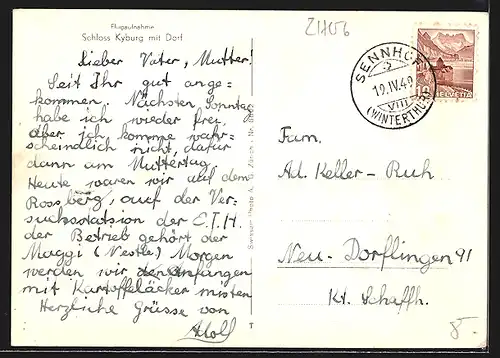 Flugaufnahme
Schloss Kyburg mit Dorf
Lieber Vater, Mutter!
Seit Ihr gut ange-
kommen. Nächsten Sonntag
habe ich wieder frei.
Aber ich komme wahr-
scheindlich nicht, dafür
dann am Muttertag.
Heute waren wir auf dem
Rossberg, auf der Ver-
suchsstatsion der E.T.H.
der Betrieb gehört der
Maggi (Nestle) Morgen
werden wir den anfangen
mit Kartoffeläcker misten
Herzliche Grüsse von
Adolf
ZH06
SENNHOF
19.IV.49
VIII
(WINTERTHUR)
HELVETIA
Fam.
Ad. Keller-Ruh
Neu-Dorflingen 91
Kt. Schaffh.
8.-
T